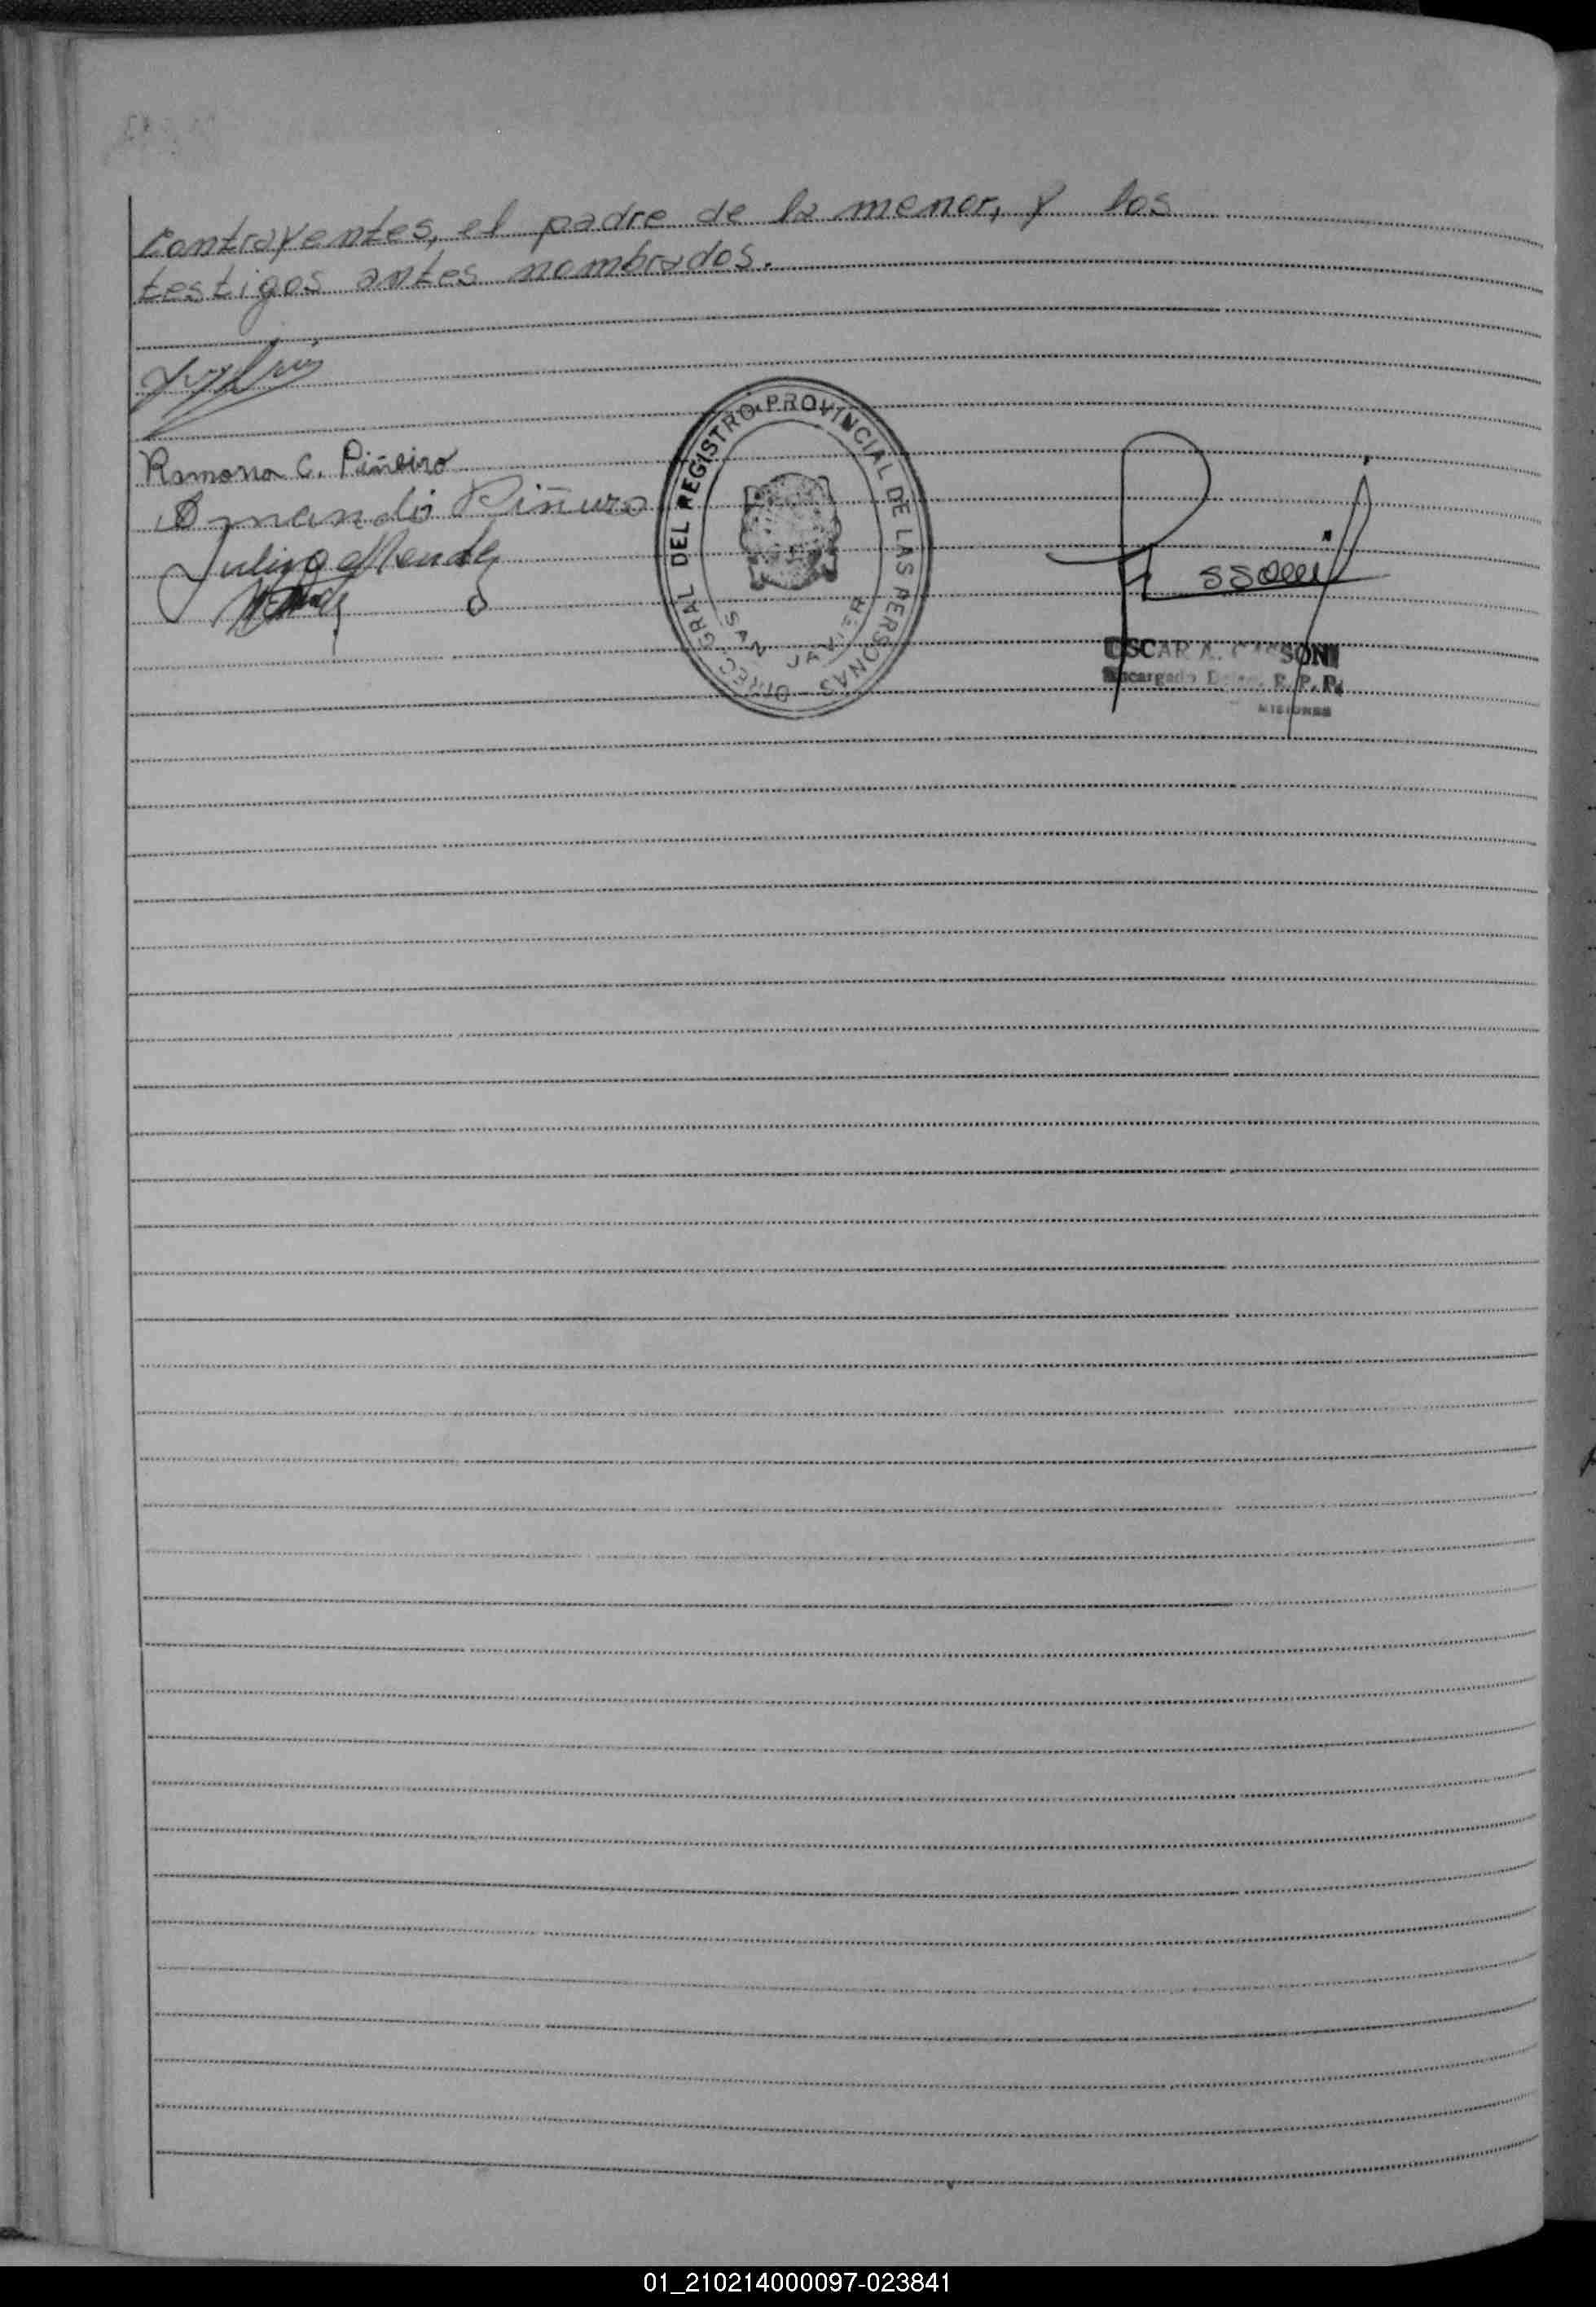 contrayentes, el padre de la menor, y los
testigos antes nombrados.
Ramona C. Piñeiro
Piñeiro
Julino Mendez
DIREC. GRAL DEL REGISTRO PROVINCIAL DE LAS PERSONAS
SAN JAVIER
OSCAR A.
Encargado R. P. P.
MISIONES
01_210214000097-023841